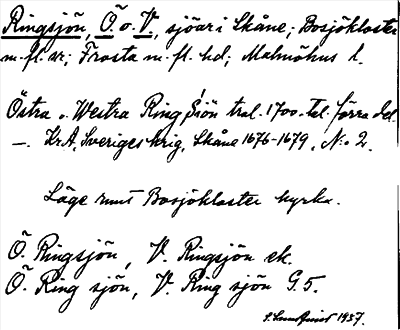 Ringsjön, Ö. o. V., sjöar i Skåne; Bosjökloster
m. fl. sr; Frosta m. fl. hd; Malmöhus l.
Östra o. Westra Ring Siön tral. 1700-tal. förra del.
–. Kr.A, Sveriges krig, Skåne 1676-1679, N:o 2.
Läge runt Bosjökloster kyrka.
Ö. Ringsjön, V. Ringsjön ek.
Ö. Ring sjön, V. Ring sjön G. 5.
1937.